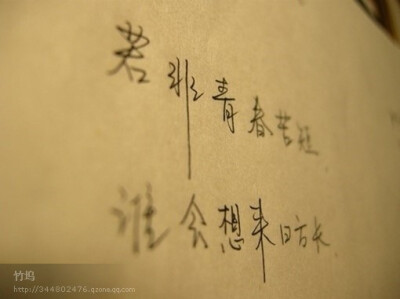 若非青春苦短
谁会想来日方长
竹坞
http://344802476.qzone.qq.com